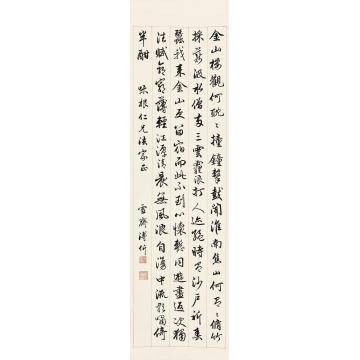 金山樓觀何眈〻撞鐘擊鼓聞淮南焦山何有〻脩竹
採薪汲水僧兩三雲霾浪打人迹絕時有沙戶祈春
蠶我來金山更留宿而此不到心懷慚同遊盡返決獨
往賦命窮薄輕江潭清晨無風浪自湧中流歌嘯倚
半酣
味根仁兄法家正
雪齋溥伒